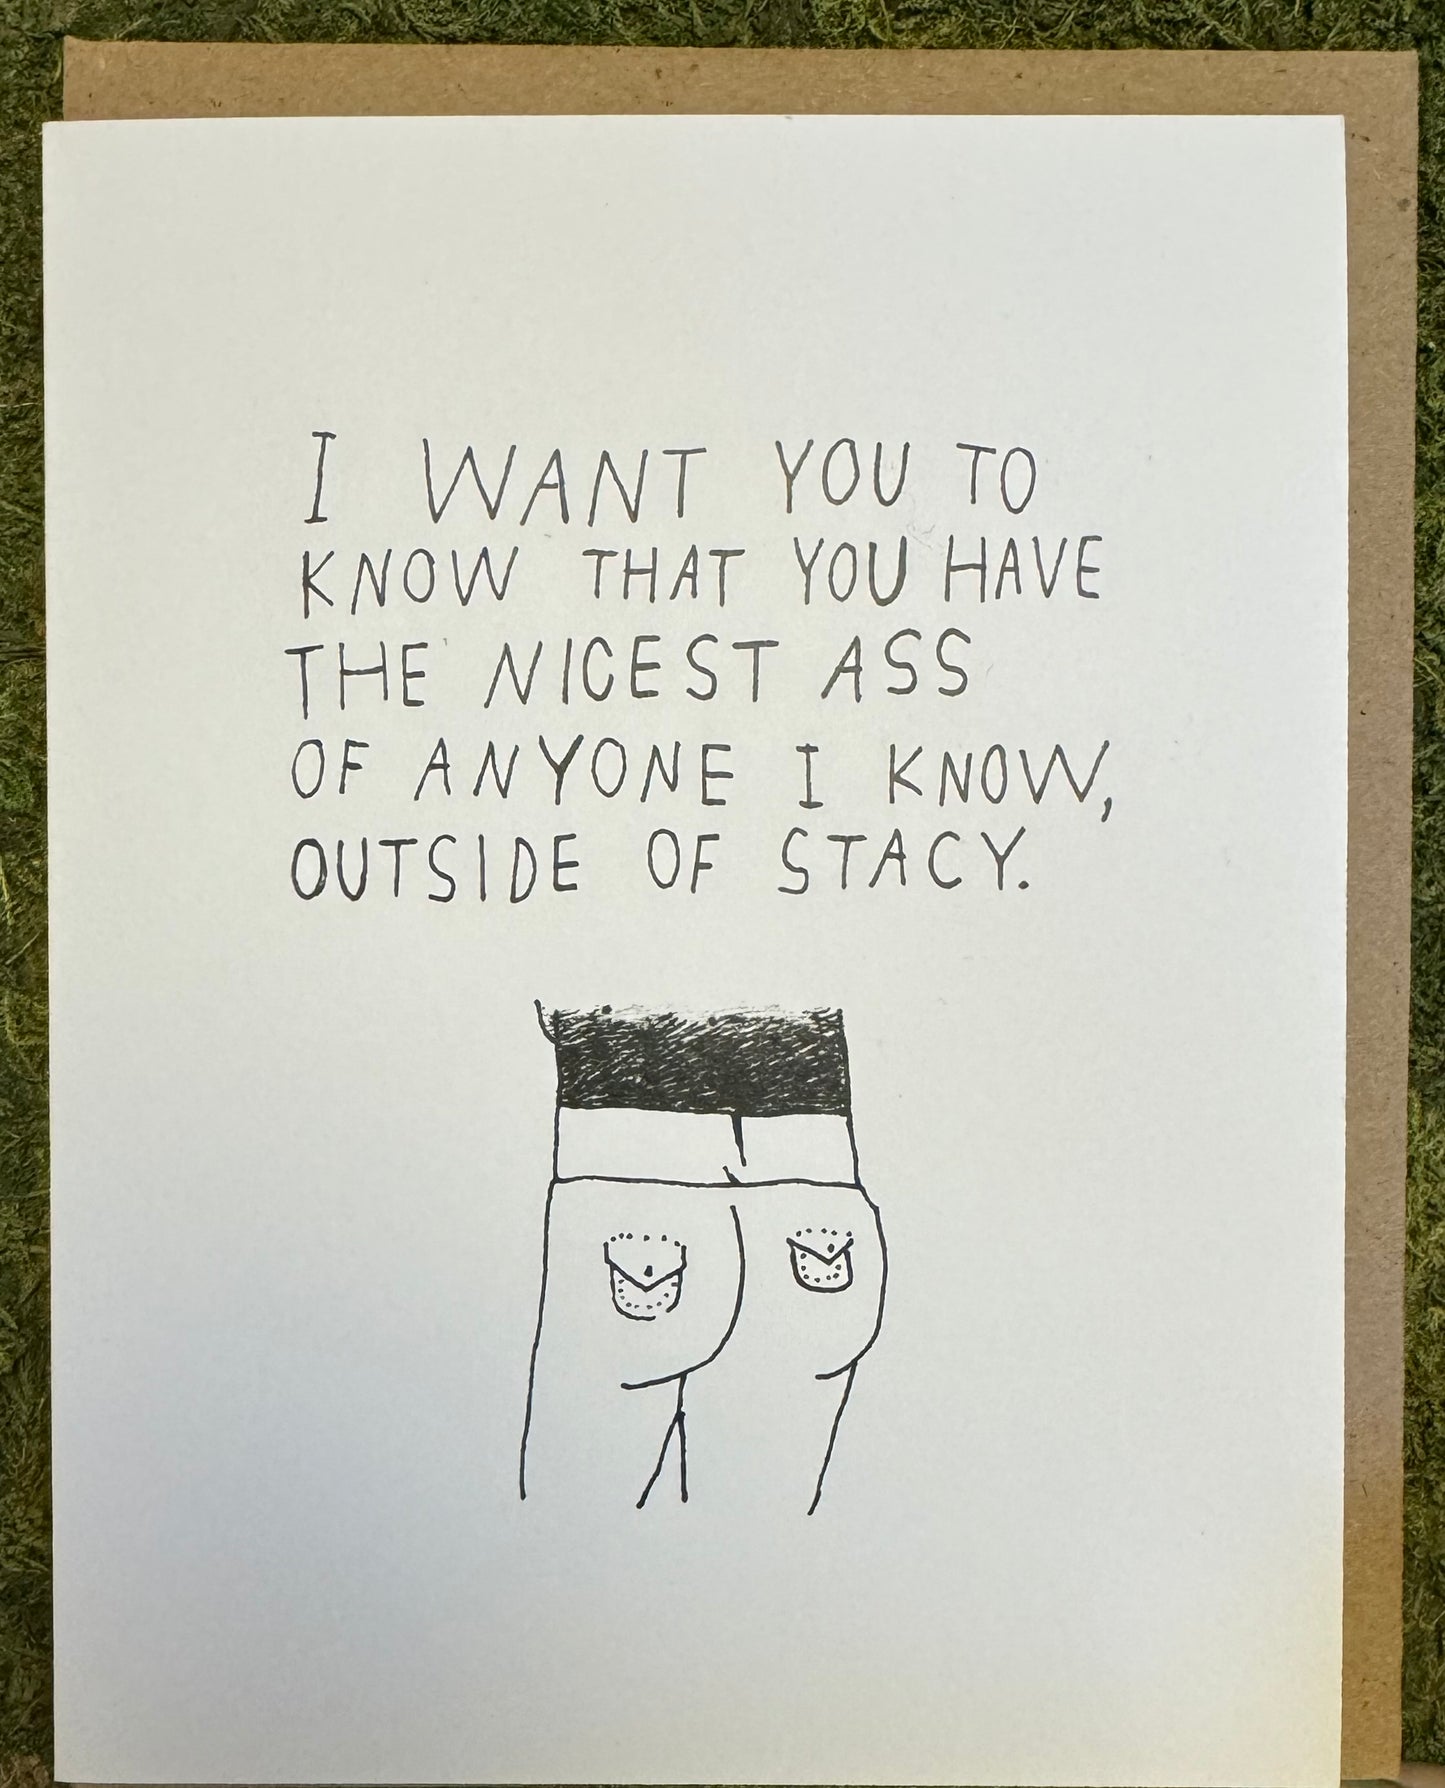 I WANT YOU TO
KNOW THAT YOU HAVE
THE NICEST ASS
OF ANYONE I KNOW,
OUTSIDE OF STACY.